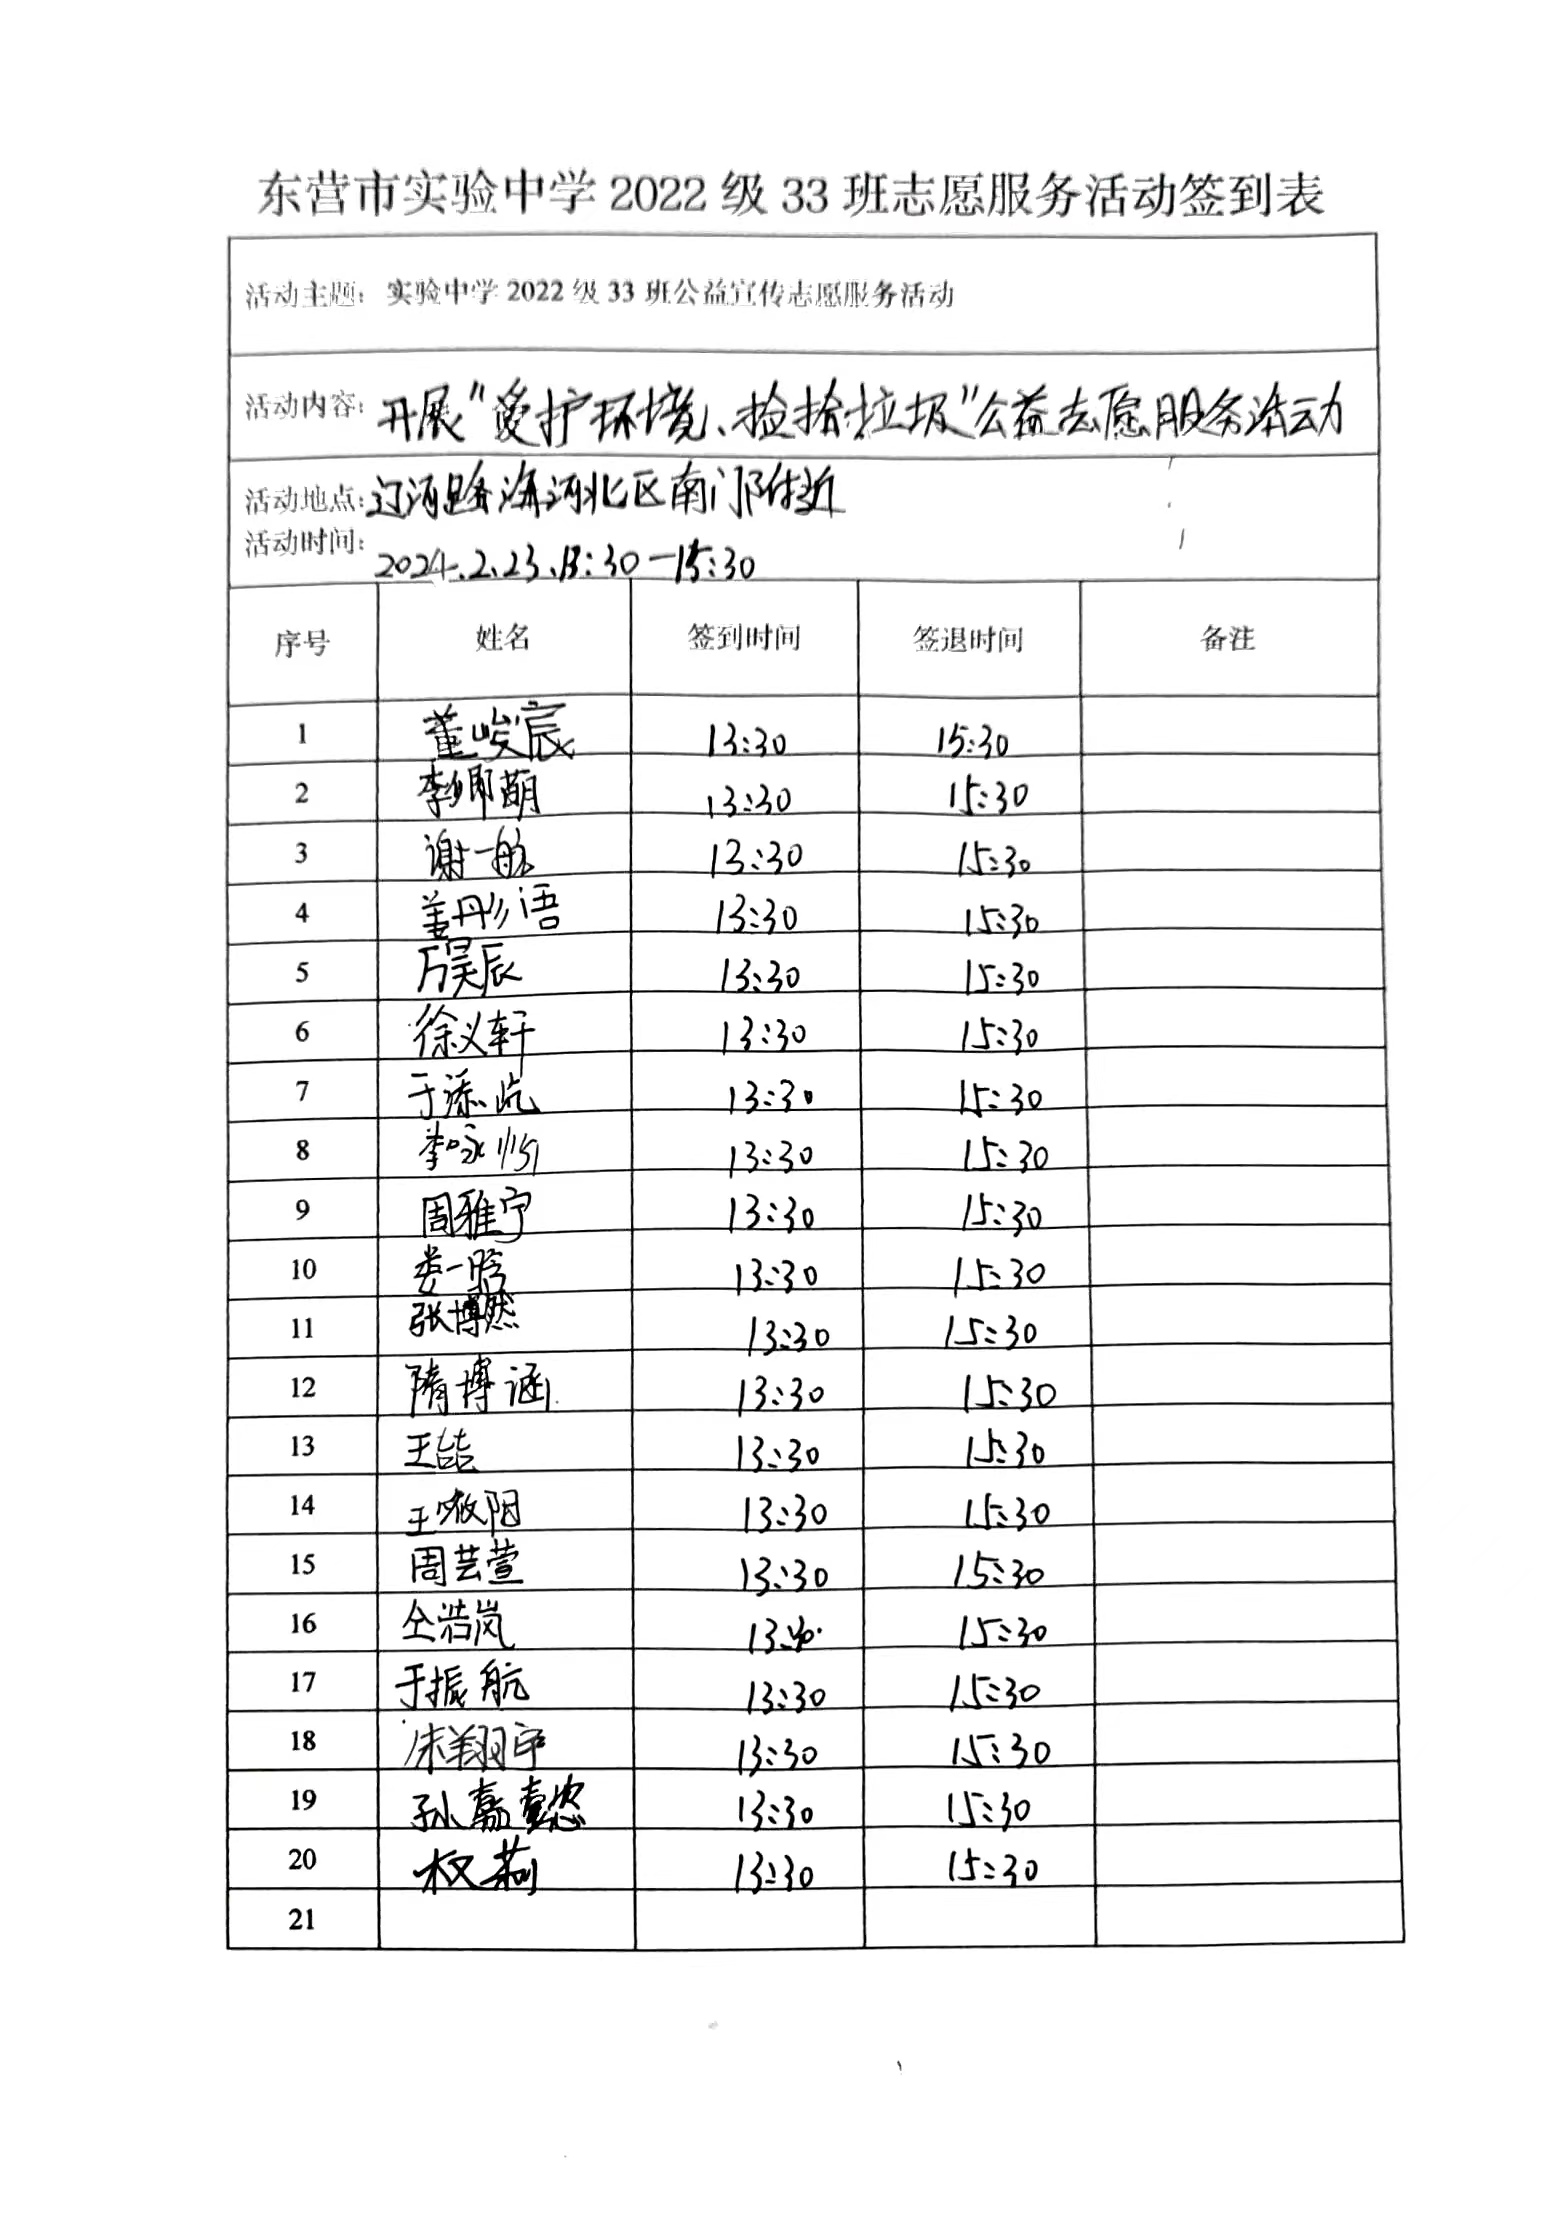 东营市实验中学 2022 级 33 班志愿服务活动签到表
活动主题: 实验中学 2022 级 33 班公益宣传志愿服务活动
活动内容: 开展"爱护环境、捡拾垃圾"公益志愿服务活动
活动地点: 辽河路海河北区南门附近
活动时间: 2024.2.23.13:30-15:30
序号 姓名 签到时间 签退时间 备注
1 董峻宸 13:30 15:30
2 李卿萌 13:30 15:30
3 谢一航 13:30 15:30
4 董彤语 13:30 15:30
5 万昊辰 13:30 15:30
6 徐义轩 13:30 15:30
7 于添屹 13:30 15:30
8 李咏 13:30 15:30
9 周雅宁 13:30 15:30
10 娄一晗 13:30 15:30
11 张博然 13:30 15:30
12 隋博涵 13:30 15:30
13 王喆 13:30 15:30
14 王阳 13:30 15:30
15 周芸萱 13:30 15:30
16 仝浩岚 15:30
17 于振航 13:30 15:30
18 宋翔宇 13:30 15:30
19 孙嘉懿 13:30 15:30
20 权莉 13:30 15:30
21